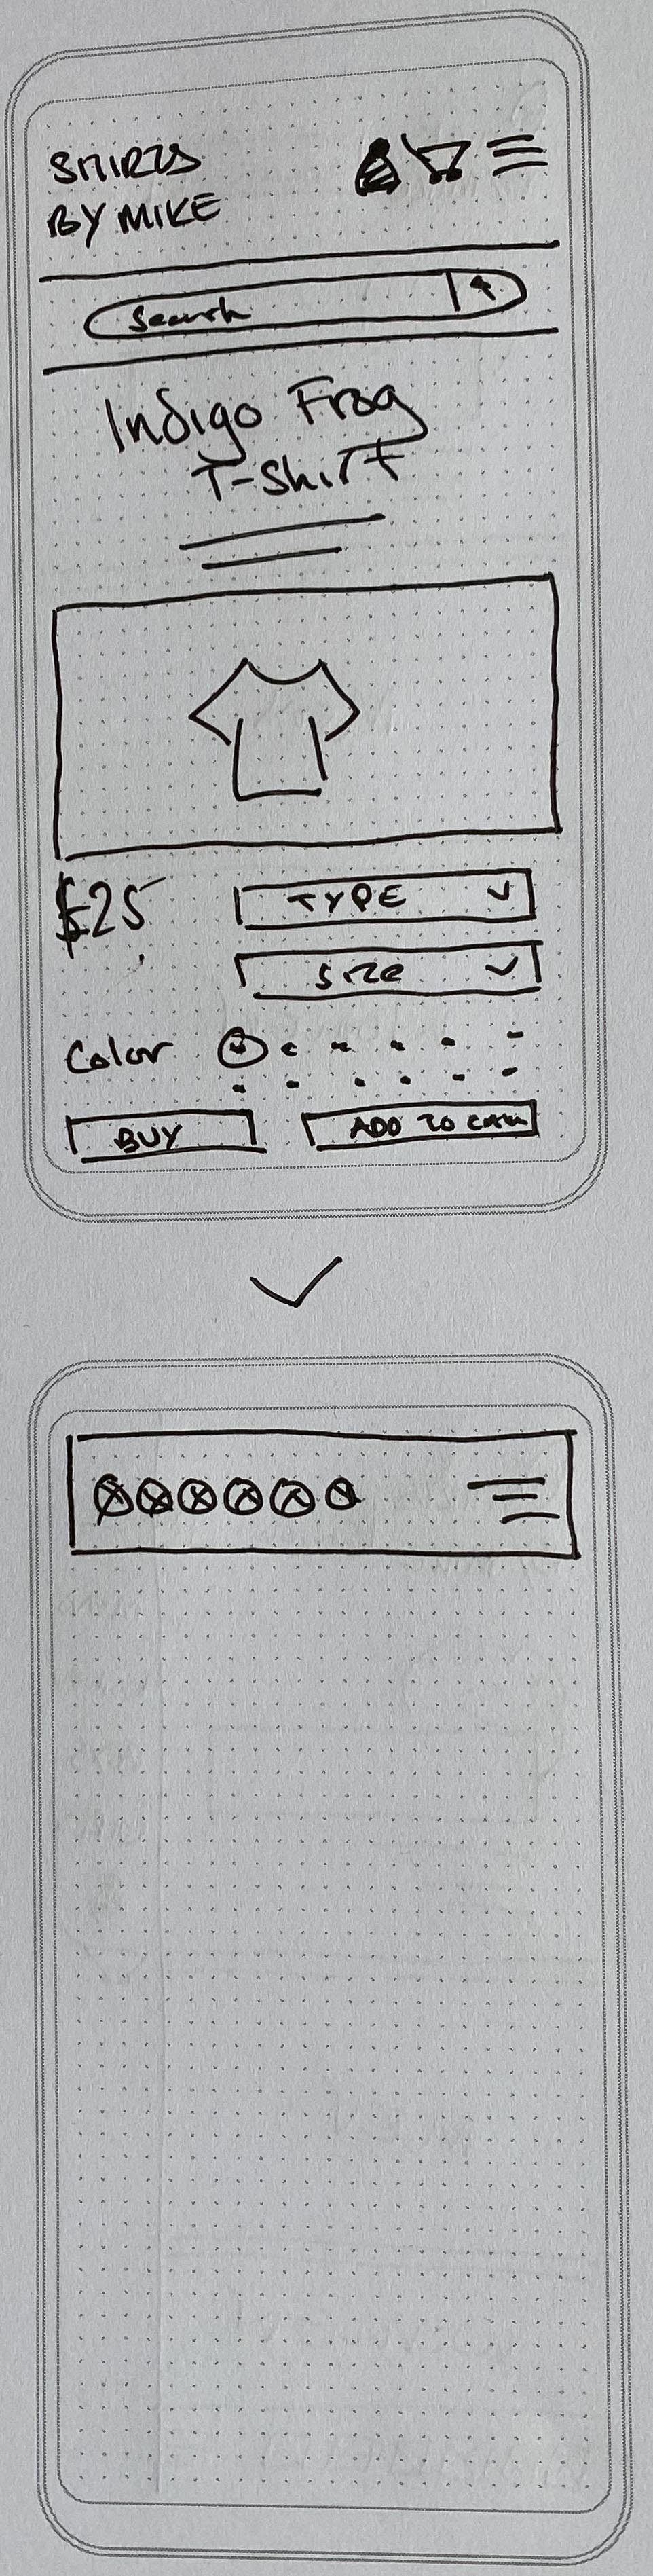 SHIRTS
BY MIKE
Search
Indigo Frog
T-Shirt
$25
TYPE
SIZE
Color
BUY
ADD TO CART